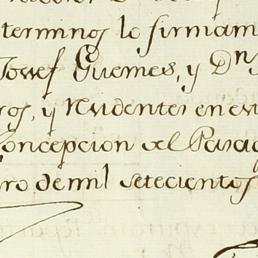 terminos lo firmam
Josef Guemes, y Dn
ros, y residentes en es
Concepcion del Parag
ro de mil setecientos